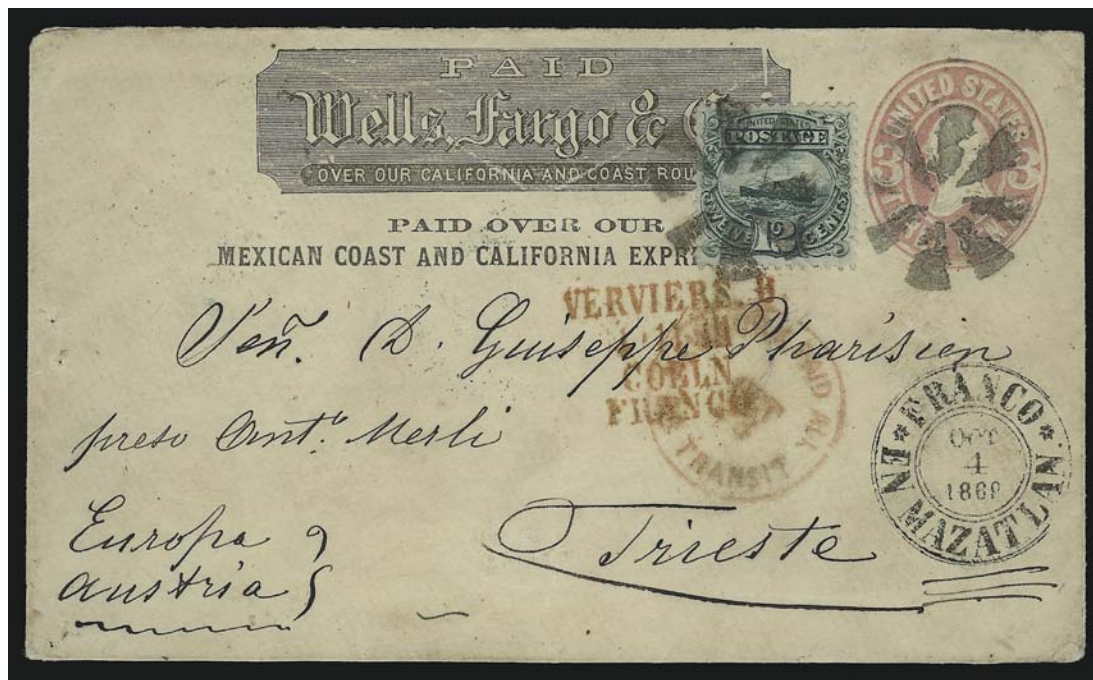 PAID
Wells, Fargo & C
OVER OUR CALIFORNIA AND COAST ROU
UNITED STATES
POSTAGE
12
TWELVE CENTS
UNITED STATES
3 3
PAID OVER OUR
MEXICAN COAST AND CALIFORNIA EXPRE
VERVIERS
COELN
FRANCO
PAID ALL
TRANSIT
Señ. D. Guiseppe Pharisien
preso Ant.º Merli
Europa
Austria
Trieste
FRANCO
EN
MAZATLAN
OCT
4
1869